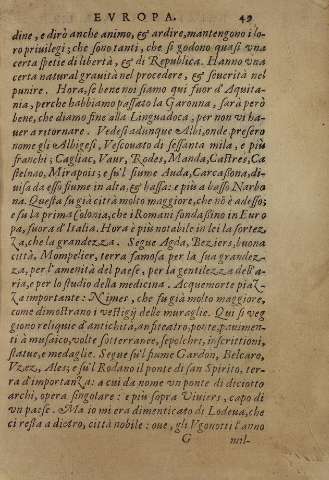 EVROPA. 49
dine, e dirò anche animo, & ardire, mantengono i lo-
ro priuilegi; che sono tanti, che si godono quasi vna
certa spetie di libertà, & di Republica. Hanno vna
certa natural grauità nel procedere, & seuerità nel
punire. Hora, se bene noi siamo quì fuor d'Aquita-
nia, perche habbiamo passato la Garonna, sarà però
bene, che diamo fine alla Linguadoca, per non vi ha-
uer a ritornare. Vedesi adunque Albi, onde presero
nome gli Albigesi, Vescouato di sessanta mila; e più
franchi; Cagliac, Vaur, Rodes, Manda, Castres, Ca
stelnao, Mirapois; e su'l fiume Auda, Carcassona, di-
uisa da esso fiume in alta, & bassa: e più a basso Narbo
na. Questa fu già città molto maggiore, che nò è adesso;
e fu la prima Colonia, che i Romani fondassino in Euro
pa, fuora d'Italia. Hora è più notabile in lei la fortez-
za, che la grandezza. Segue Agda, Beziers, buona
città, Mompelier, terra famosa per la sua grandez-
za, per l'amenità del paese, per la gentilezza dell'a-
ria, e per lo studio della medicina. Acquemorte piaz-
za importante: Nimes, che fu già molto maggiore,
come dimostrano i vestigij delle muraglie. Quì si veg
giono reliquie d'antichità, anfiteatro, ponte, pauimen-
ti à musaico, volte sotterranee, sepolchri, inscrittioni,
statue, e medaglie. Segue su'l fiume Gardon, Belcaro,
Vzez, Alez; e su'l Rodano il ponte di san Spirito, ter-
ra d'importanza: a cui da nome vn ponte di diciotto
archi, opera singolare: e più sopra Viuiers, capo di
vn paese. Ma io mi era dimenticato di Lodeua, che
ci resta a dietro, città nobile: oue, gli Vgonotti l'anno
G mil-